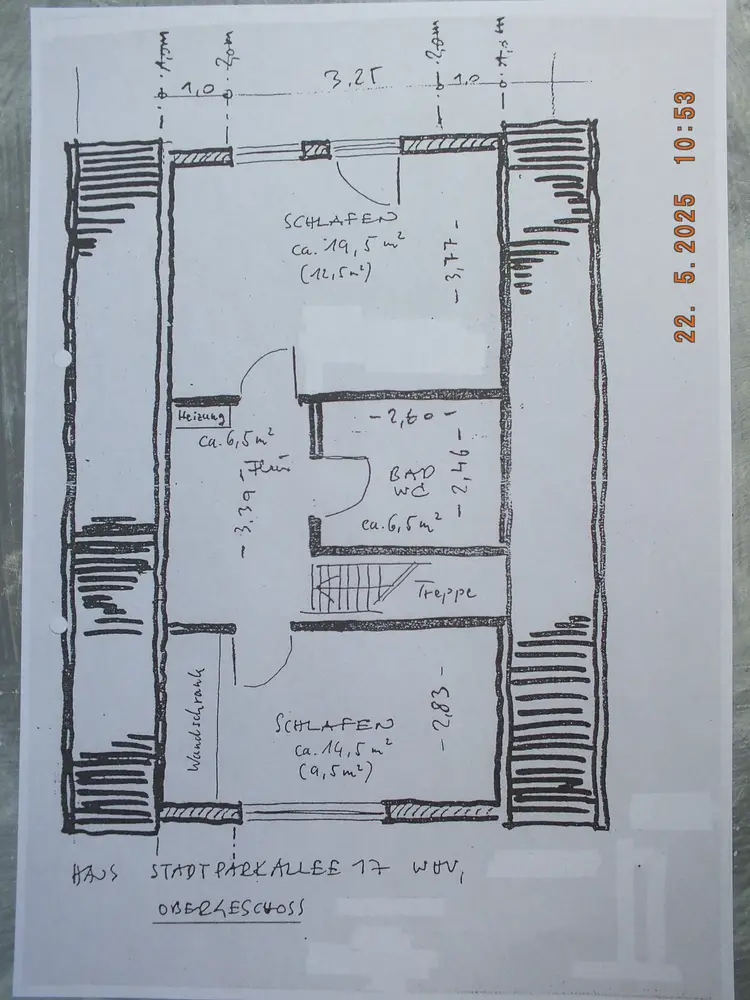 1,0m
2,0m
2,0m
1,0m
1,0
3,25
1,0
22. 5.2025 10:53
SCHLAFEN
ca. 19,5 m²
(12,5m²)
- 3,77 -
Heizung
ca. 6,5 m²
Flur
- 3,39 -
- 2,60 -
BAD
WC
- 2,46 -
ca. 6,5 m²
Treppe
Wandschrank
SCHLAFEN
ca. 14,5 m²
(9,5m²)
- 2,83 -
HAUS STADTPARKALLEE 17 WHV,
OBERGESCHOSS